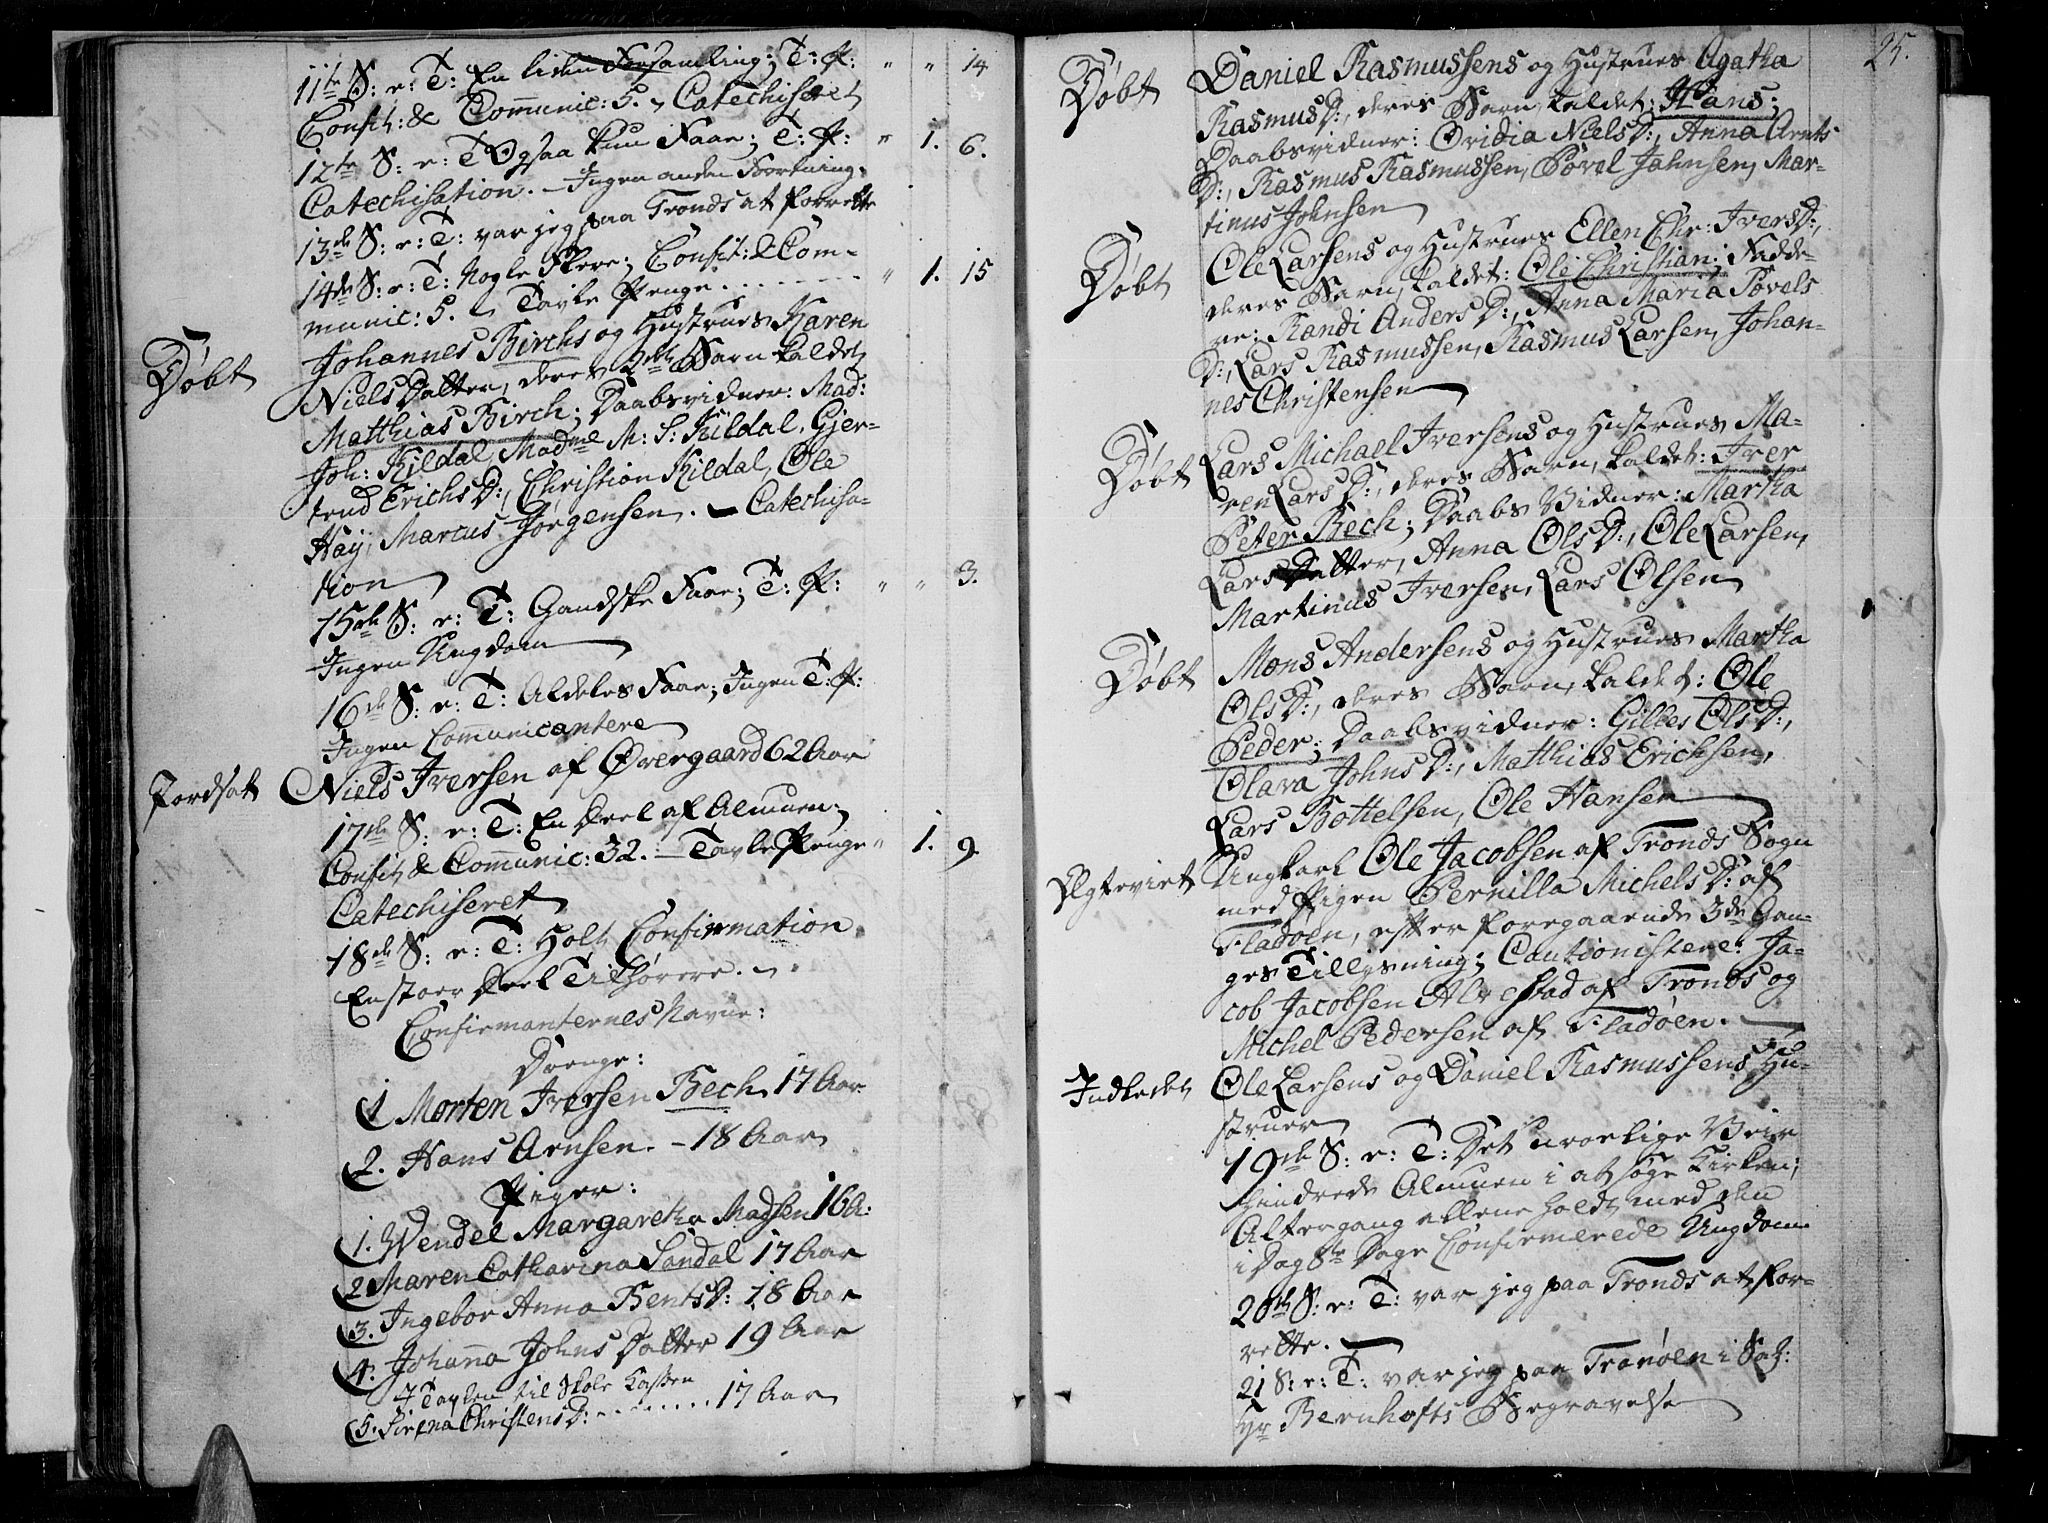 11te S: e: T: En liden Forsamling; T: P: " " 14
Confit: & Communic: 5. Catechiseret
12te S: e: T Ogsaa kun Faae; T: P: " 1. 6.
Catechisation. – Ingen anden Forretning.
13de S: e: T: var jeg paa Tronds at forrette
14de S: e: T: Nogle Flere; Confit: & Com-
munic: 5. Tavle Penge . . . . . . " 1. 15
Døbt
Johannes Birchs og Hustrues Karen
Niels Datter, deres 2det Barn kaldet
Matthias Birch; Daabsvidner: Mad:
Joh: Kildal, Madme M: S: Kildal, Gjer-
trud Erichs D:, Christion Kildal, Ole
Høy, Marcus Jørgensen. – Catechisa-
tion
15de S: e: T: Gandske Faae; T: P: " " 3.
Ingen Ungdom
16de S: e: T: Aldeles Faae; Ingen T: P:
Ingen Communicantere
Jordsat Niels Iversen af Øvergaard 62 Aar
17de S: e: T: En Deel af Almuen;
Confit & Communic: 32. – Tavle Penge " 1. 9.
Catechiseret
18de S: e: T: Holt Confirmation.
En stoer Deel Tilhørere.
Confirmanternes Navne:
Drenge:
1 Morten Iversen Bech 17 Aar
2. Hans Arnsen. – 18 Aar
Piger:
1. Wendel Margaretha Madsen 16 A:
2 Maren Catharina Sandal 17 Aar
3. Ingebor Anna Bents D: 18 Aar
4. Johanna Johns Datter 19 Aar
I Tavlen til Skole Kassen
5. Sirena Christens D: . . . . . . . 17 Aar
25.
Døbt
Daniel Rasmussens og Hustrues Agatha
Rasmus D:, deres Barn, kaldet: Hans;
Daabsvidner: Oridia Niels D:, Anna Arnts
D:, Rasmus Rasmussen, Povel Jahnsen, Mar-
tinus Johnsen
Døbt
Ole Larsens og Hustrues Ellen Chr: Ivers D:,
deres Barn, kaldet: Ole Christian; Fadde-
re: Randi Anders D:, Anna Maria Povels
D:, Lars Rasmussen, Rasmus Larsen, Johan-
nes Christensen
Døbt
Lars Michael Iversens og Hustrues Ma-
ren Lars D:, deres Barn, kaldet: Iver
Peter Bech; Daabs Vidner: Martha
Lars Datter, Anna Ols D:, Ole Larsen,
Martinus Iversen, Lars Olsen
Døbt
Mons Andersens og Hustrues Martha
Ols D:, deres Barn, kaldet: Ole
Peder; Daabsvidner: Gilles Ols D:,
Olava Johns D:, Matthias Erichsen,
Lars Bottelsen, Ole Hansen
Ægteviet Ungkarl Ole Jacobsen af Tronds Sogn
med Pigen Pernilla Michels D: af
Fladøen, efter foregaaende 3de Gan-
ges Tillysning; Cautionistere: Ja-
cob Jacobsen Alvestad af Tronds og
Michel Pedersen af Fladøen.
Indledet Ole Larsens og Daniel Rasmussens Hu-
struer
19de S: e: T: Det uroelige Veir
hindrede Almuen i at søge Kirken;
Altergang allene holdt med den
i Dag 8te Dage Confirmerede Ungdom
20de S: e: T: var jeg paa Tronds at for-
rette.
21 S: e: T: var jeg paa Tranøen i Sal:
Hr Bernhofts Begravelse